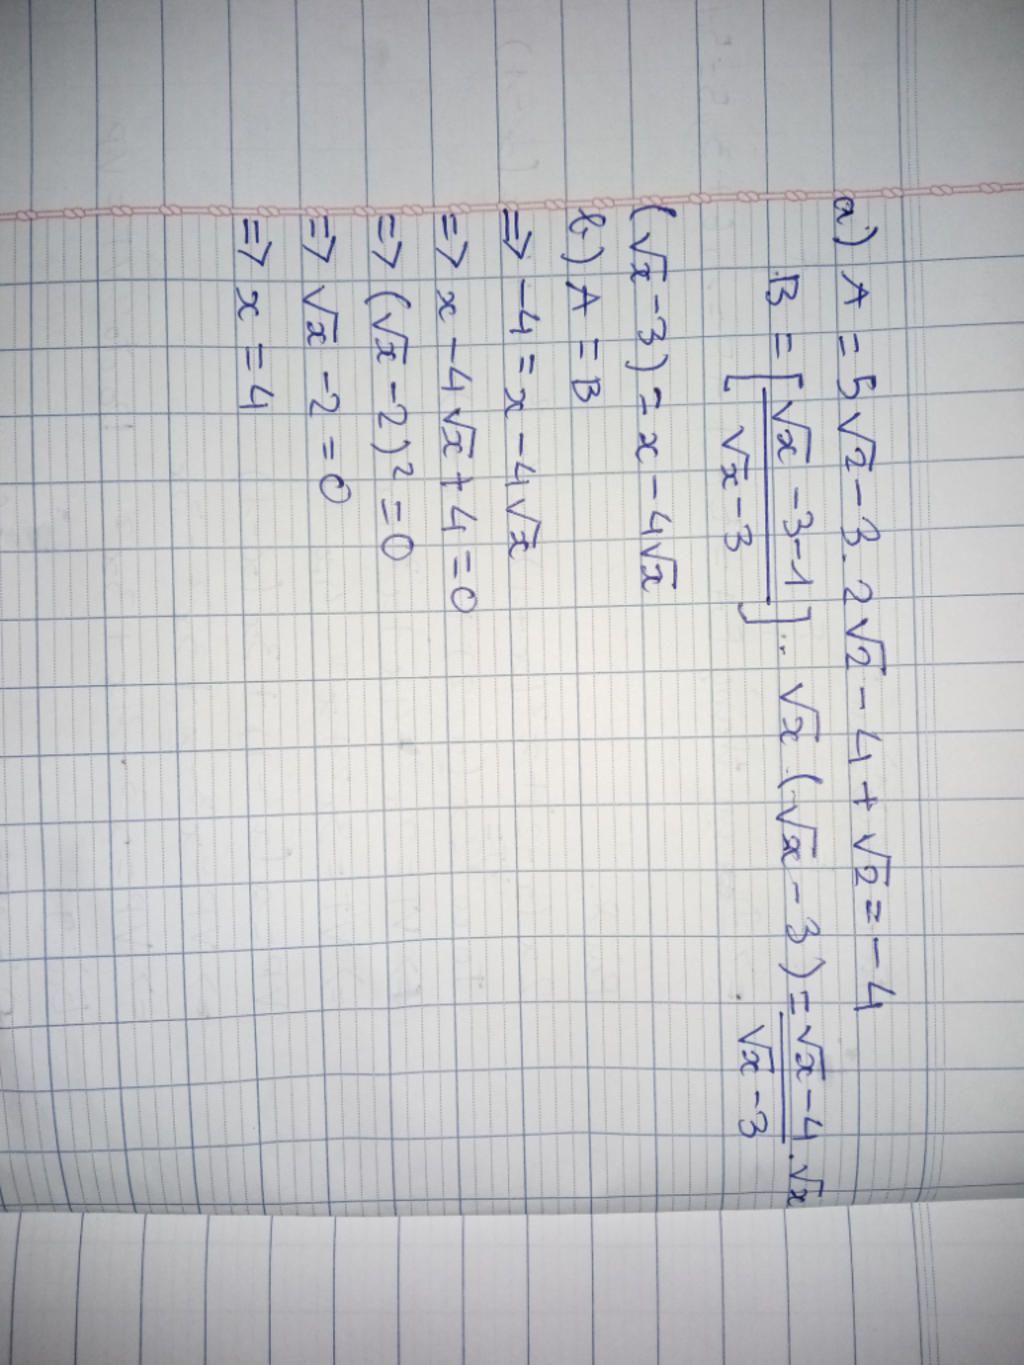 a) A = 5√2 - 3.2√2 - 4 + √2 = - 4
B = [(√x - 3 - 1)/(√x - 3)] . √x (√x - 3) = (√x - 4)/(√x - 3) . √x
(√x - 3) = x - 4√x
b) A = B
=> -4 = x - 4√x
=> x - 4√x + 4 = 0
=> (√x - 2)² = 0
=> √x - 2 = 0
=> x = 4